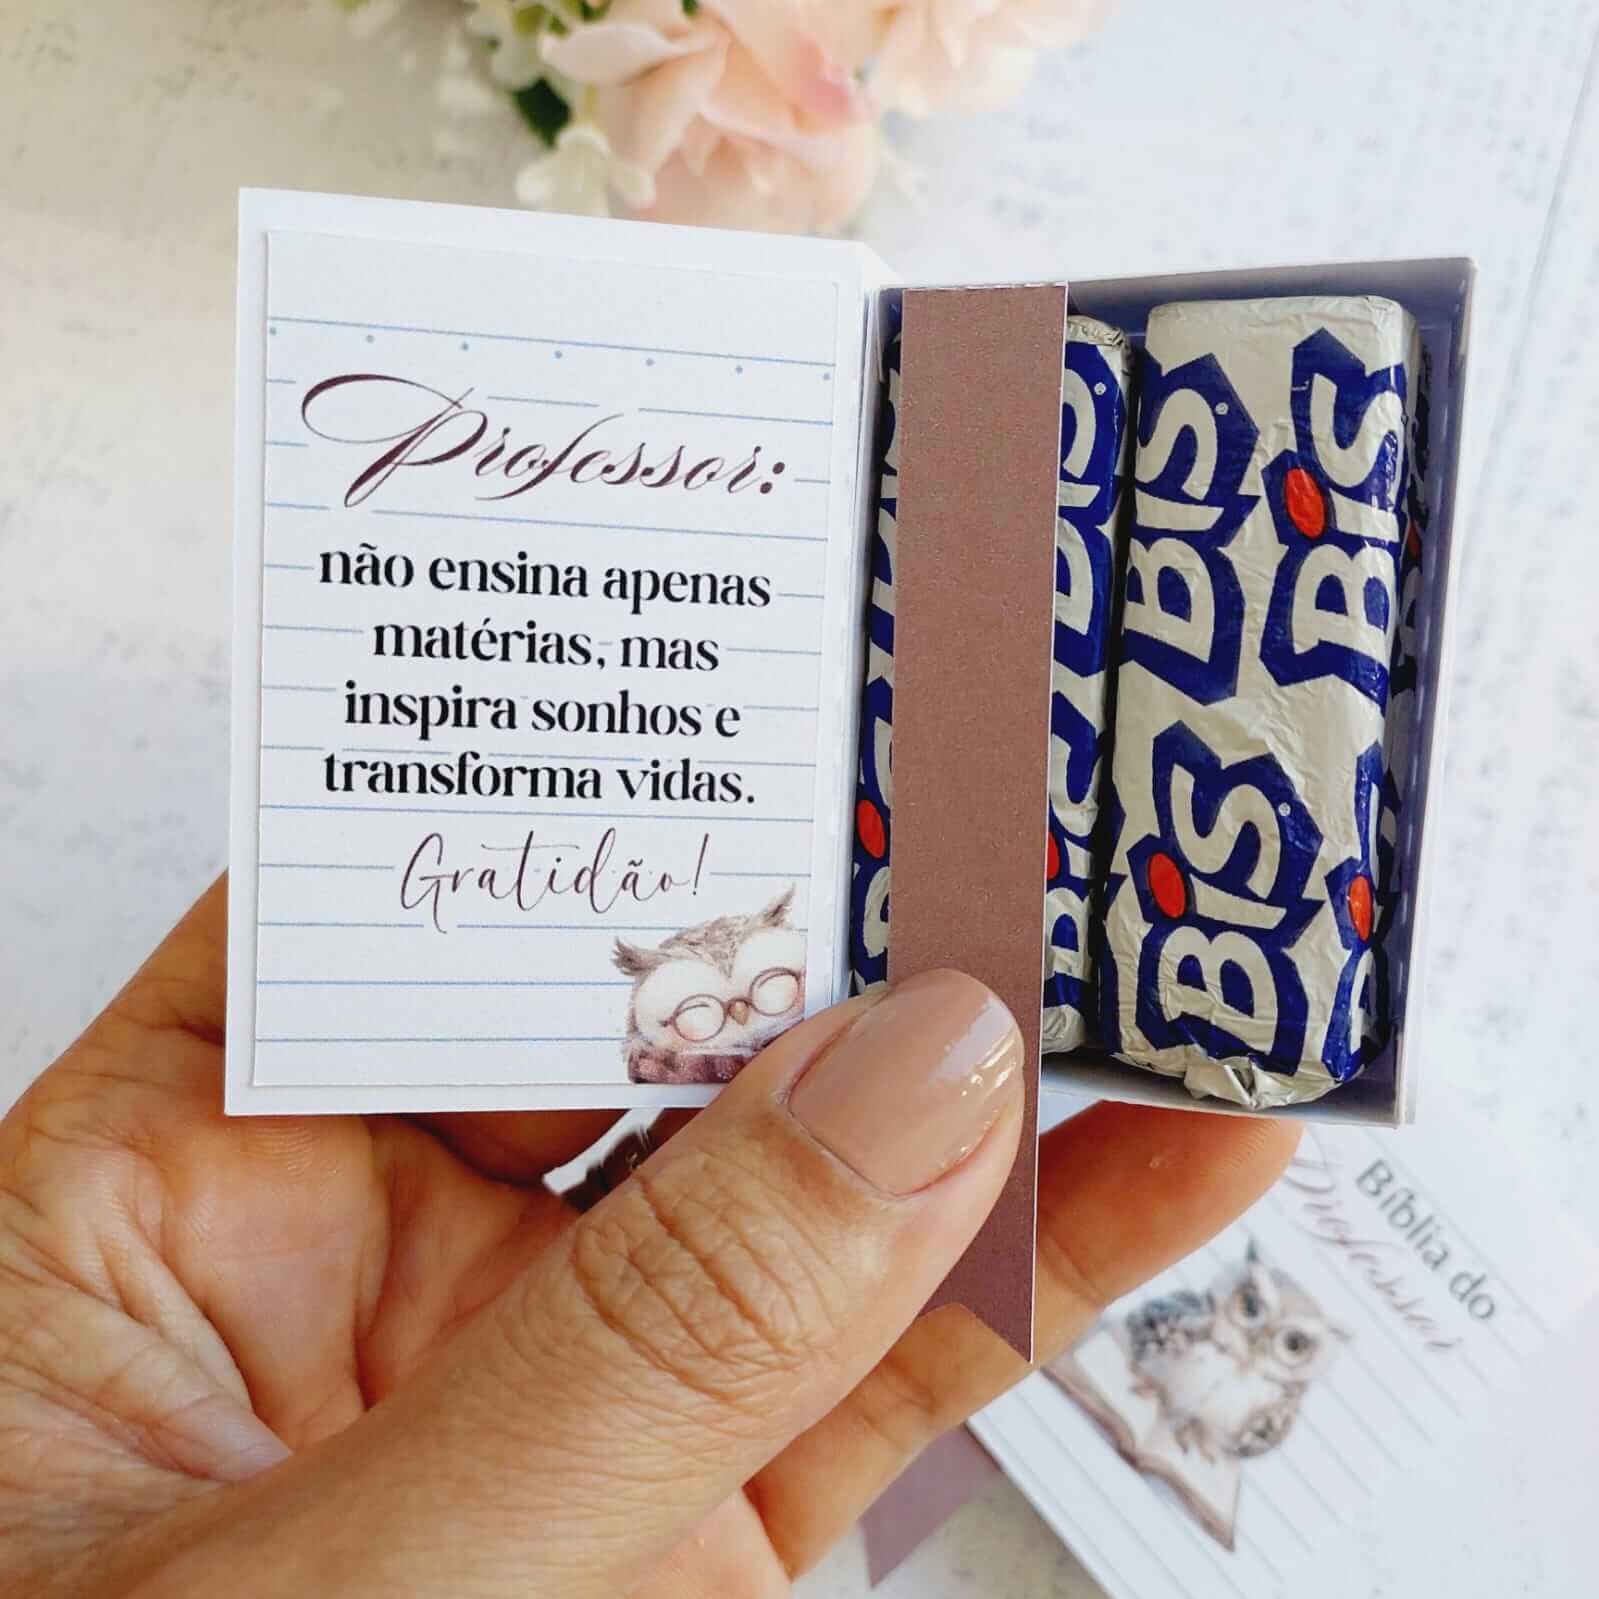 Professor:
não ensina apenas
matérias, mas
inspira sonhos e
transforma vidas.
Gratidão!
BIS
BIS
BIS
BIS
Bíblia do
Professor